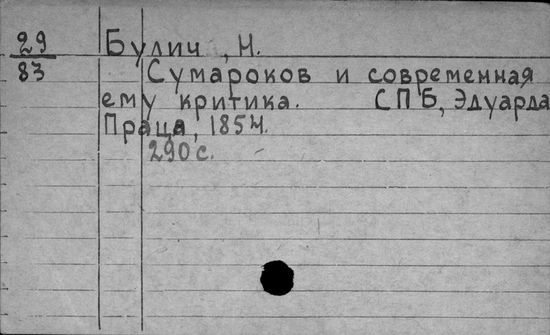 29
83
Булич, Н.
Сумароков и современная
ему критика. СПБ, Эдуарда
Праца, 1854.
290 с.